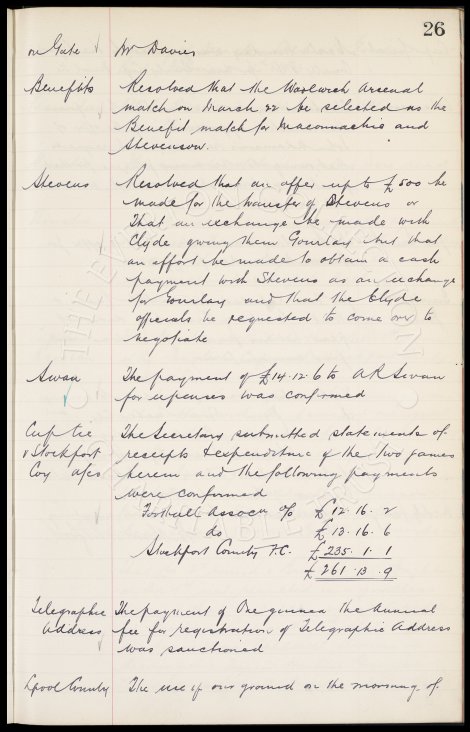 26
on Gate Dr Davies
Benefits Resolved that the Woolwich Arsenal
match on March 22 be selected as the
Benefit match for Maconnachie and
Stevenson.
Stevens Resolved that an offer up to £500 be
made for the transfer of Stevens or
that an exchange be made with
Clyde giving them Gourlay but that
an effort be made to obtain a cash
payment with Stevens as an exchange
for Gourlay and that the Clyde
officials be requested to come over to
negotiate
Swan The payment of £14.12.6 to A R Swan
for expenses was confirmed
Cup tie The Secretary submitted statements of
v Stockport receipts & expenditure of the two games
Coy a/cs herein and the following payments
were confirmed
Football Associn % £12.16.2
do £13.16.6
Stockport County F.C. £235.1.1
£261.13.9
Telegraphic The payment of One guinea the Annual
Address fee for registration of Telegraphic Address
was sanctioned
Lpool County The use of our ground on the morning of